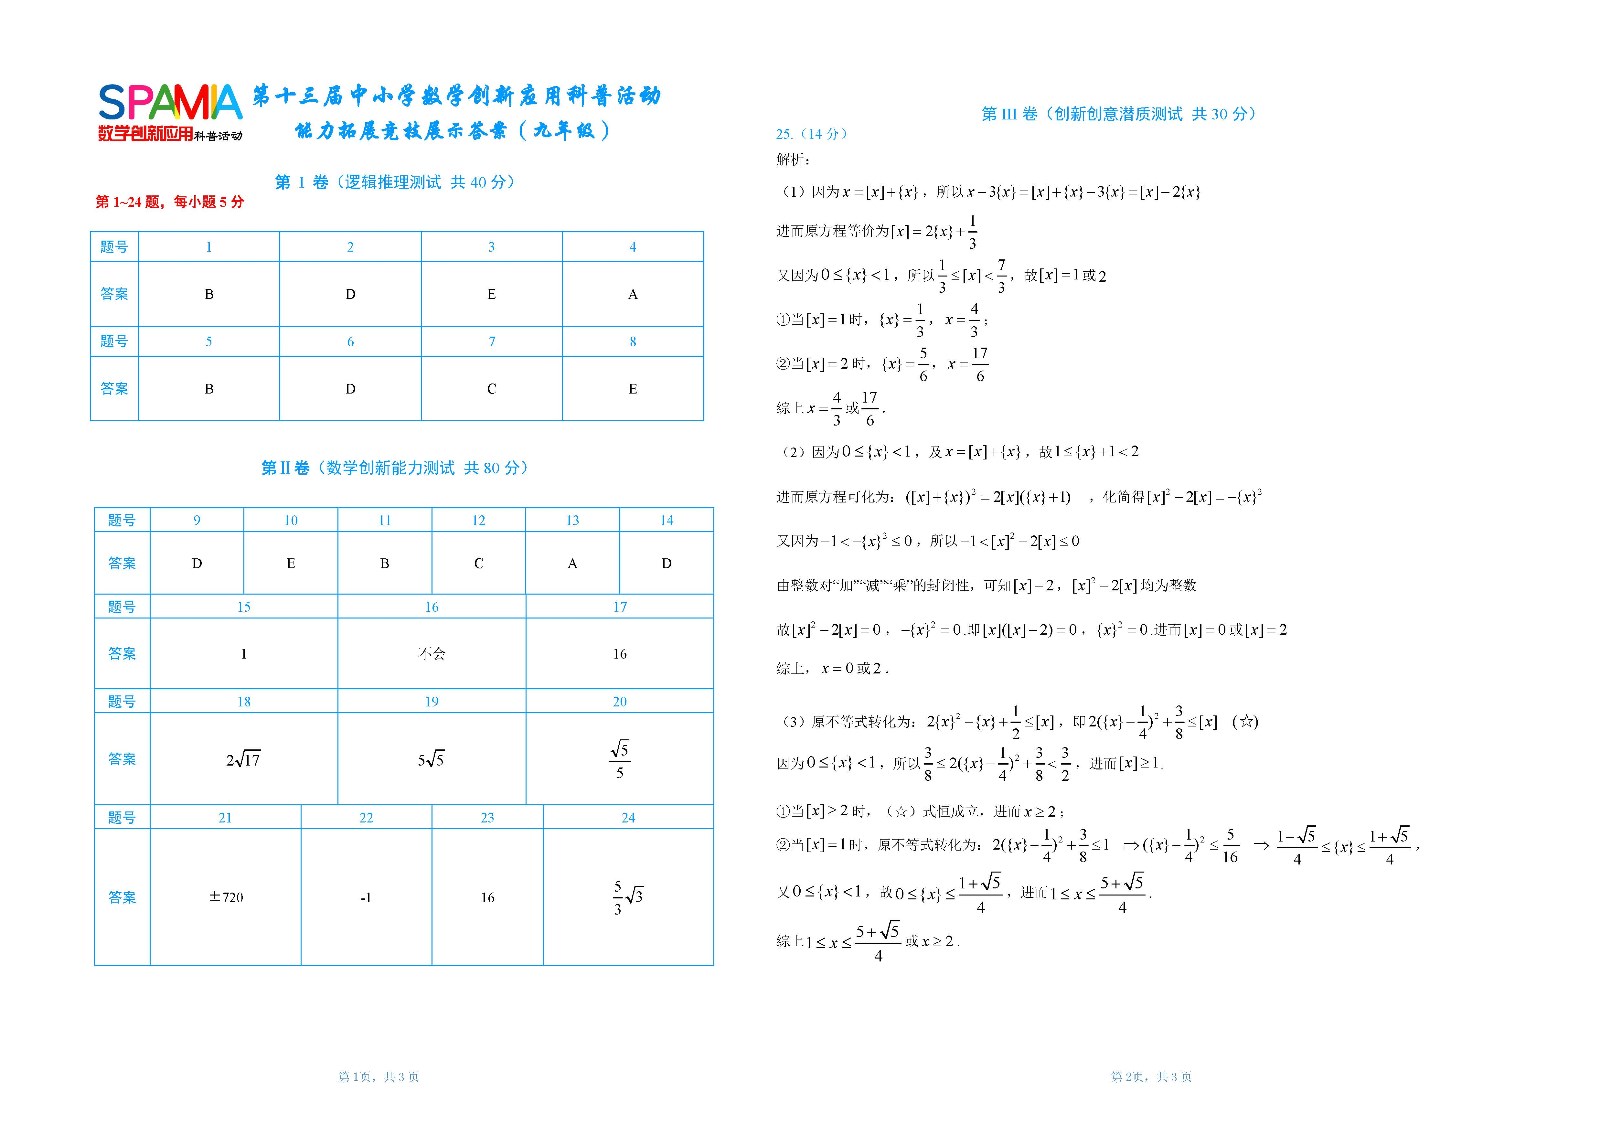 SPAMIA
数学创新应用科普活动
第十三届中小学数学创新应用科普活动
能力拓展竞技展示答案（九年级）
第 I 卷（逻辑推理测试 共 40 分）
第 1~24 题，每小题 5 分
题号 1 2 3 4
答案 B D E A
题号 5 6 7 8
答案 B D C E
第Ⅱ卷（数学创新能力测试 共 80 分）
题号 9 10 11 12 13 14
答案 D E B C A D
题号 15 16 17
答案 1 不会 16
题号 18 19 20
答案 2√17 5√5 √5/5
题号 21 22 23 24
答案 ±720 -1 16 5/3√3
第 1页，共 3 页
第 III 卷（创新创意潜质测试 共 30 分）
25.（14 分）
解析：
（1）因为 x=[x]+{x}，所以 x−3{x}=[x]+{x}−3{x}=[x]−2{x}
进而原方程等价为[x]=2{x}+1/3
又因为0≤{x}<1，所以1/3≤[x]<7/3，故[x]=1或2
①当[x]=1时，{x}=1/3，x=4/3；
②当[x]=2时，{x}=5/6，x=17/6
综上 x=4/3或17/6．
（2）因为0≤{x}<1，及 x=[x]+{x}，故1≤{x}+1<2
进而原方程可化为：([x]+{x})²=2[x]({x}+1)，化简得[x]²−2[x]=−{x}²
又因为−1<−{x}²≤0，所以−1<[x]²−2[x]≤0
由整数对“加”“减”“乘”的封闭性，可知[x]−2，[x]²−2[x]均为整数
故[x]²−2[x]=0，−{x}²=0.即[x]([x]−2)=0，{x}²=0.进而[x]=0或[x]=2
综上，x=0或2．
（3）原不等式转化为：2{x}²−{x}+1/2≤[x]，即2({x}−1/4)²+3/8≤[x] (☆)
因为0≤{x}<1，所以3/8≤2({x}−1/4)²+3/8<3/2，进而[x]≥1.
①当[x]≥2时，（☆）式恒成立．进而x≥2；
②当[x]=1时，原不等式转化为：2({x}−1/4)²+3/8≤1 ⇒({x}−1/4)²≤5/16 ⇒ (1−√5)/4≤{x}≤(1+√5)/4，
又0≤{x}<1，故0≤{x}≤(1+√5)/4，进而1≤x≤(5+√5)/4．
综上1≤x≤(5+√5)/4或x≥2．
第 2页，共 3 页